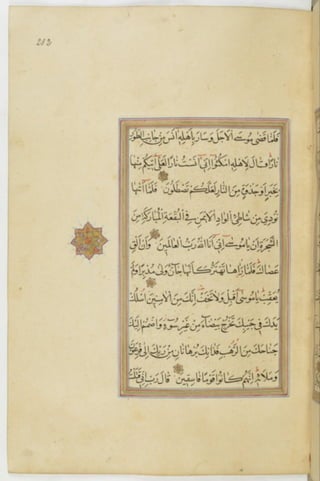 203
فَلَمَّا قَضَىٰ مُوسَى الْاَجَلَ وَسَارَ بِاَهْلِهِ اٰنَسَ مِنْ جَانِبِ الطُّورِ
نَارًا قَالَ لِاَهْلِهِ امْكُثُوا اِنِّي اٰنَسْتُ نَارًا لَعَلِّي اٰتِيكُمْ مِنْهَا
بِخَبَرٍ اَوْ جَذْوَةٍ مِنَ النَّارِ لَعَلَّكُمْ تَصْطَلُونَ فَلَمَّا اَتٰيهَا
نُودِيَ مِنْ شَاطِئِ الْوَادِ الْاَيْمَنِ فِي الْبُقْعَةِ الْمُبَارَكَةِ مِنَ
الشَّجَرَةِ اَنْ يَا مُوسَى اِنِّي اَنَا اللّٰهُ رَبُّ الْعَالَمِينَ وَاَنْ اَلْقِ
عَصَاكَ فَلَمَّا رَاٰهَا تَهْتَزُّ كَاَنَّهَا جَانٌّ وَلّٰى مُدْبِرًا وَلَمْ
يُعَقِّبْ يَا مُوسَى اَقْبِلْ وَلَا تَخَفْ اِنَّكَ مِنَ الْاٰمِنِينَ اُسْلُكْ
يَدَكَ فِي جَيْبِكَ تَخْرُجْ بَيْضَاءَ مِنْ غَيْرِ سُوءٍ وَاضْمُمْ اِلَيْكَ
جَنَاحَكَ مِنَ الرَّهْبِ فَذَانِكَ بُرْهَانَانِ مِنْ رَبِّكَ اِلٰى فِرْعَوْنَ
وَمَلَائِهِ اِنَّهُمْ كَانُوا قَوْمًا فَاسِقِينَ قَالَ رَبِّ اِنِّي قَتَلْتُ